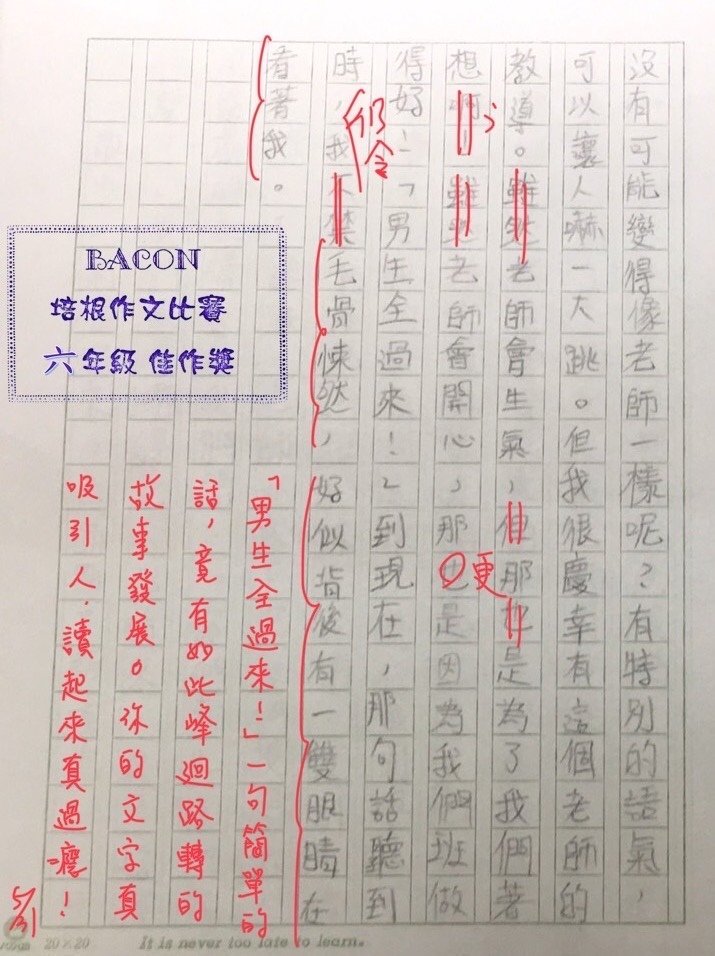 沒有可能變得像老師一樣呢？有特別的語氣，
可以讓人嚇一大跳。但我很慶幸有這個老師的
教導。雖然老師會生氣，但那也是為了我們著
想啊！雖然老師會開心，那也是因為我們班做
；
更
得好！「男生全過來！」到現在，那句話聽到
仍令
時，我不禁毛骨悚然，好似背後有一雙眼睛在
看著我。
「男生全過來！」一句簡單的
話，竟有如此峰迴路轉的
故事發展。你的文字真
吸引人，讀起來真過癮！
5/31
BACON
培根作文比賽
六年級 佳作獎
20×20
It is never too late to learn.